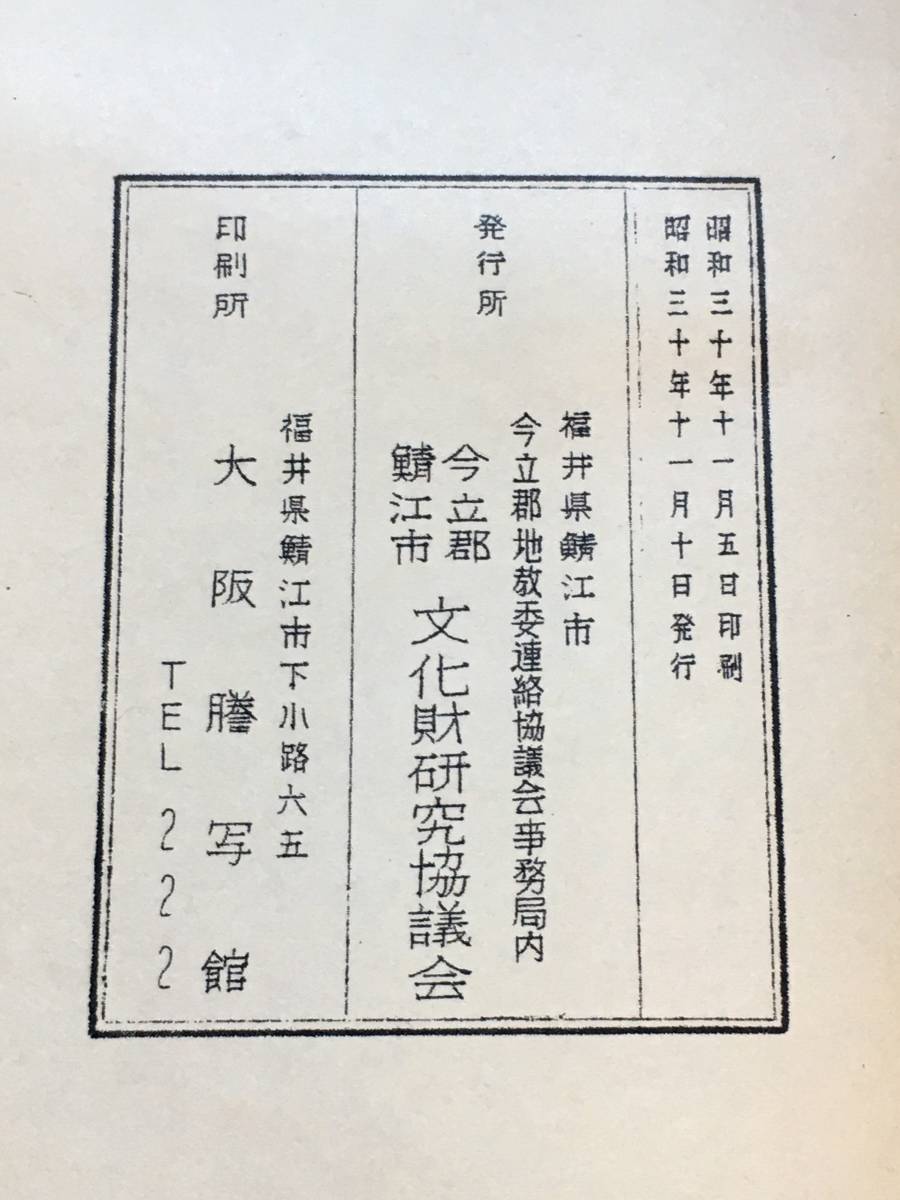 昭和三十年十一月五日印刷
昭和三十年十一月十日発行
発行所
福井県鯖江市
今立郡地教委連絡協議会事務局内
今立郡
鯖江市
文化財研究協議会
印刷所
福井県鯖江市下小路六五
大阪謄写館
TEL222